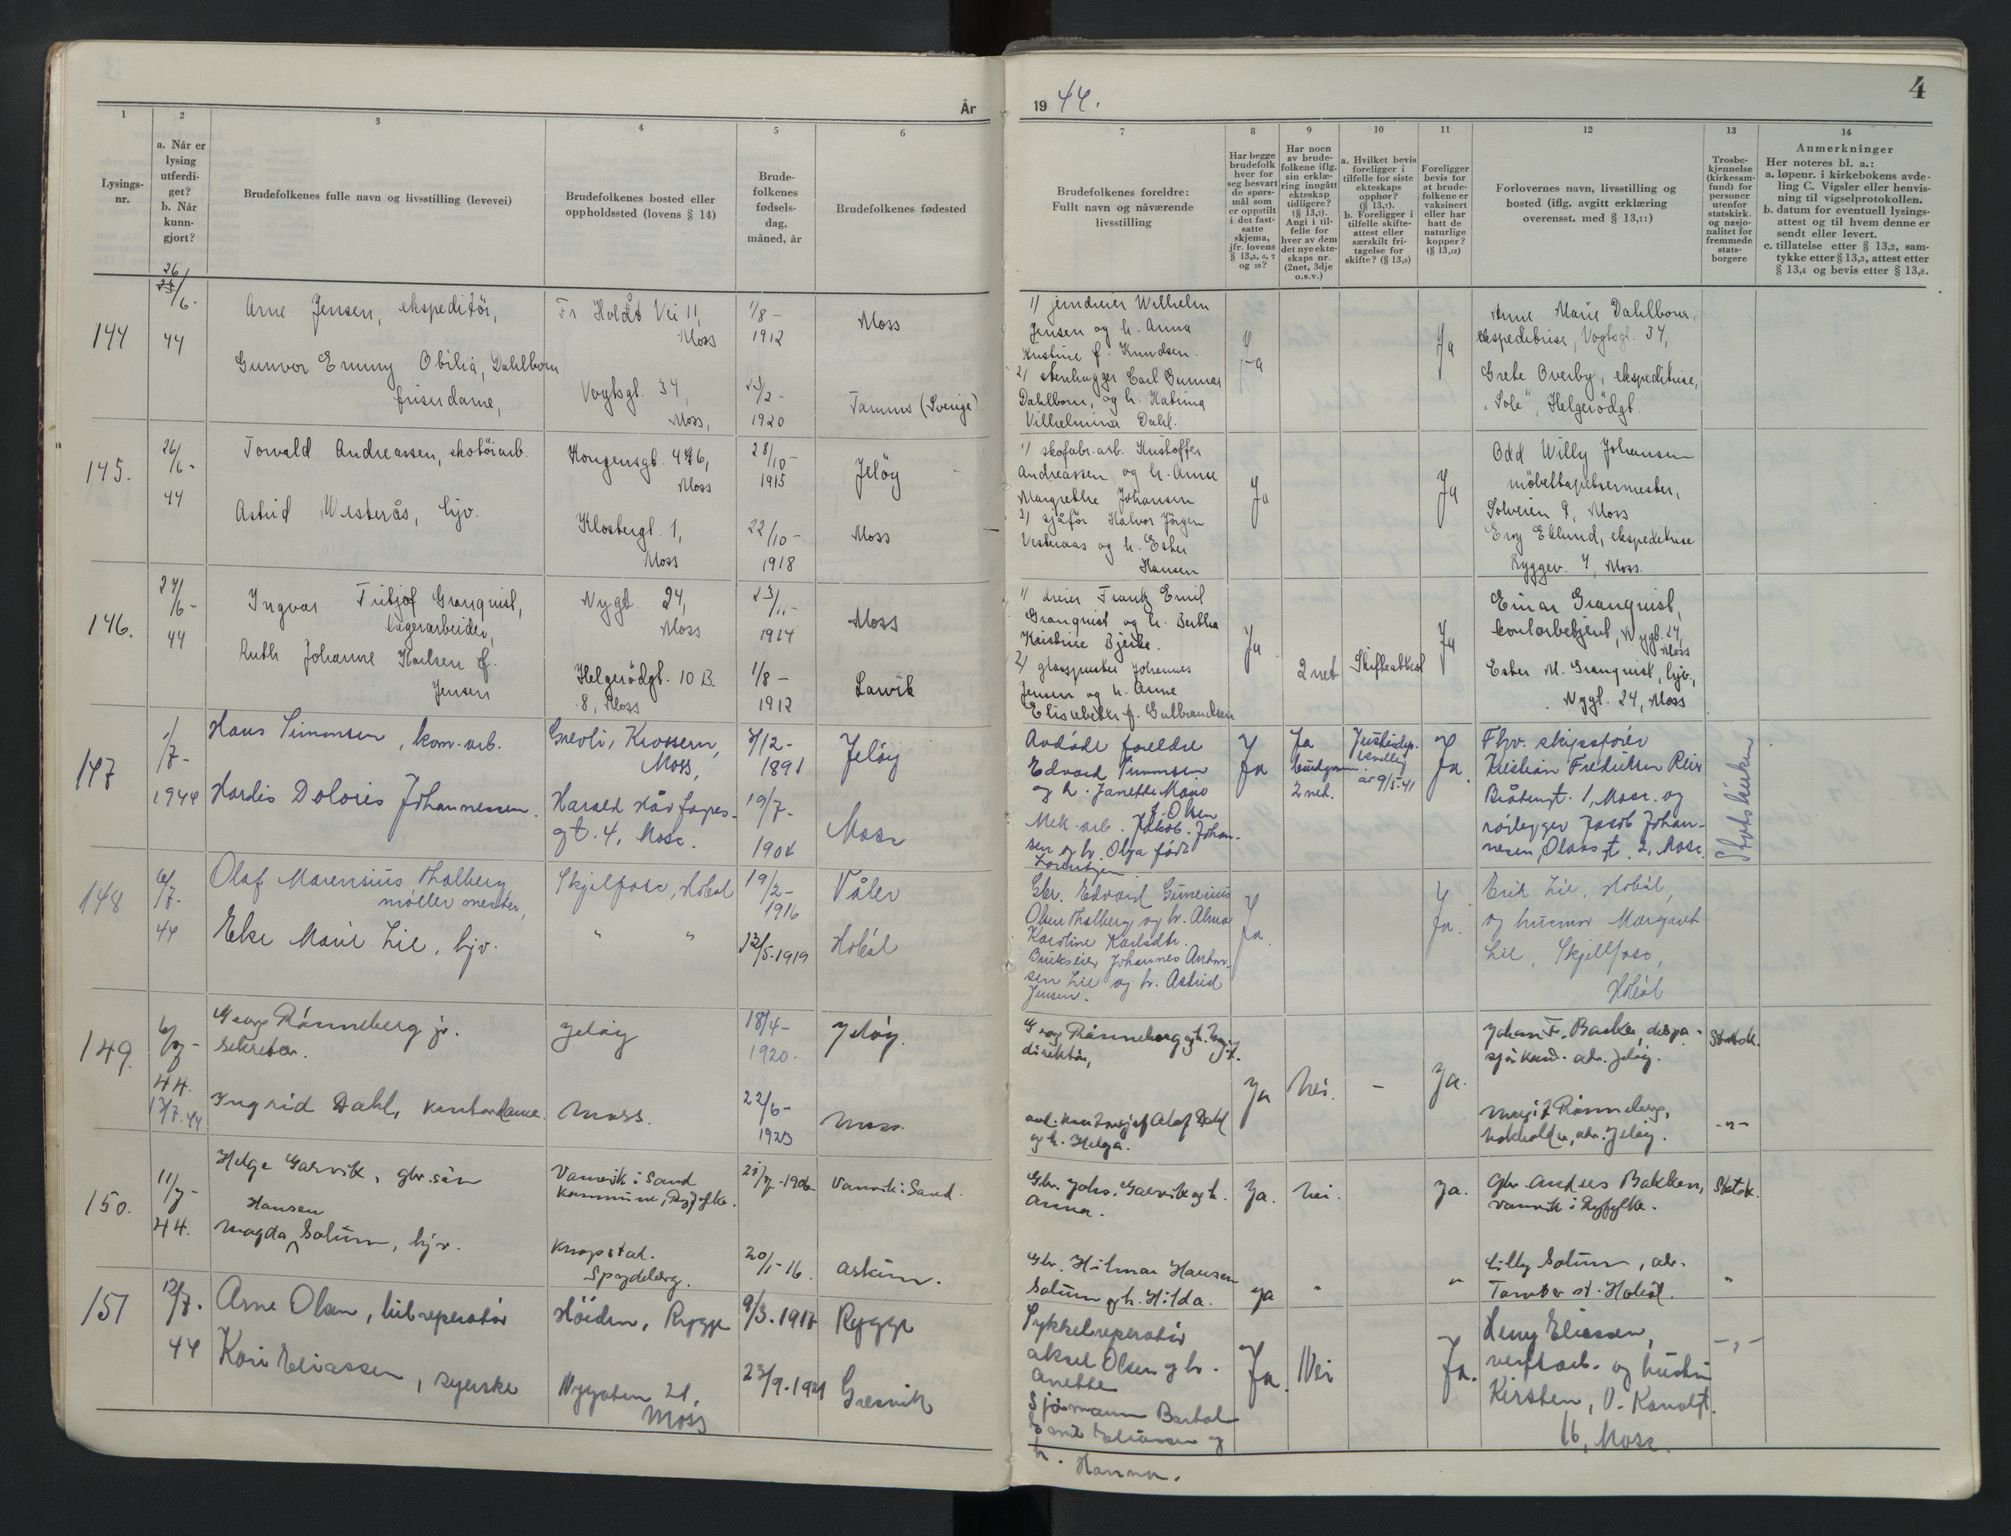 År
1 2 3 4 5 6
Lysings-
nr.
a. Når er
lysing
utferdi-
get?
b. Når
kunn-
gjort?
Brudefolkenes fulle navn og livsstilling (levevei)
Brudefolkenes bosted eller
oppholdssted (lovens § 14)
Brude-
folkenes
fødsels-
dag,
måned, år
Brudefolkenes fødested
144
26/6.
44
Arne Jensen, ekspeditør,
Fr Holdts Vei 11,
Moss
1/8-
1912
Moss
Gunvor Emmy Obilia, Dahlbom
frisørdame,
Vogtsgt. 34,
Moss,
23/2-
1920
Tamms (Sverige)
145.
26/6-
44
Torvald Andreassen, skotøiarb.
Kongensgt. 46,
Moss
28/10-
1915
Jeløy
Astrid Westerås, hjv.
Klostergt. 1,
Moss
22/10-
1918
Moss
146.
27/6-
44
Ingvar Fritjof Granquist,
lagerarbeider,
Nygt. 24,
Moss
23/11-
1914
Moss
Ruth Johanne Karlsen f.
Jensen
Helgerödgt. 10 B.
Moss
1/8-
1912
Larvik
147
1/7-
1944
Hans Simonsen, kom. arb.
Krossern,
Moss,
3/12-
1891
Jeløy
Hardis Doloris Johannessen.
Harald Hårfagres-
gt. 4, Moss.
19/7-
1904
Moss
148
6/7-
44
Olaf Marensius Thalberg
møller mester,
Skjelfoss, Hobøl
19/2-
1916
Våler
Else Marie Lie, hjv.
" "
12/5-1919
Hobøl
149.
6/7-
44.
13/7.44
Georg Rønneberg jr.
sekretær.
Jeløy
18/4-
1920.
Jeløy.
Ingrid Dahl, kontordame.
Moss.
22/6-
1923
Moss.
150.
11/7-
44.
Helge Garvik, gbr. søn
Vanvik i Sand
kommune, Ryfylke.
21/7-1906
Vanvik i Sand.
Hansen
Magda Solum, hjv.
Knapstad.
Spydeberg.
20/1-16.
Askim.
151
12/7.
44
Arne Olsen, bilreparatør
Høiden, Rygge
9/3.1917
Rygge
Kari Eliassen, syerske
Nygaten 21,
Moss
23/9.1921
Gresvik
19 44.
4
7 8 9 10 11 12 13 14
Brudefolkenes foreldre:
Fullt navn og nåværende
livsstilling
Har begge
brudefolk
hver for
seg besvart
de spørs-
mål som
er oppstilt
i det fast-
satte
skjema,
jfr. lovens
§ 13,5, 6, 7
og 10?
Har noen
av brude-
folkene iflg.
sin erklæ-
ring inngått
ekteskap
tidligere?
(§ 13,7).
Angi i til-
felle for
hver av dem
det nye ekte-
skaps nr.
(2net, 3dje
o.s.v.)
a. Hvilket bevis
foreligger i
tilfelle for siste
ekteskaps
opphør?
(§ 13,7).
b. Foreligger i
tilfelle skifte-
attest eller
særskilt fri-
tagelse for
skifte? (§ 13,9)
Foreligger
bevis for
at brude-
folkene er
vaksinert
eller har
hatt de
naturlige
kopper?
(§ 13,12)
Forlovernes navn, livsstilling og
bosted (iflg. avgitt erklæring
overensst. med § 13,11)
Trosbe-
kjennelse
(kirkesam-
fund) for
personer
utenfor
statskirk.
og nasjo-
nalitet for
fremmede
stats-
borgere
Anmerkninger
Her noteres bl. a.:
a. løpenr. i kirkebokens avde-
ling C. Vigsler eller henvis-
ning til vigselprotokollen.
b. datum for eventuell lysings-
attest og til hvem denne er
sendt eller levert.
c. tillatelse etter § 13,2, sam-
tykke etter § 13,3, attest etter
§ 13,4 og bevis etter § 13,8.
1) jerndreier Wilhelm
Jensen og h. Anna
Kristine f. Knudsen.
2) stenhugger Carl Gunnar
Dahlbom, og h. Katrina
Vilhelmina Dahl.
Ja
Ja
Anne Marie Dahlbom,
ekspeditrise, Vogtsgt. 34,
Grete Overby, ekspeditrise,
"Sole", Helgerödgt.
1) skofabr. arb. Kristoffer
Andreassen og h. Anne
Margrethe Johansen
2) sjåfør Halvor Jörgen
Vesteraas og h. Ester
Hansen
Ja
Ja
Odd Willy Johansen
møbeltapetsermester,
Solveien 9, Moss
Eroy Eklund, ekspeditrise
Ryggev. 7, Moss.
1) dreier Frantz Emil
Granquist og h. Berthea
Kristine Bjerke.
2) glasspuster Johannes
Jensen og h. Anne
Elisabeth f. Gulbrandsen
Ja
2 net
Skifteattest
Ja
Einar Granquist,
kontorbetjent, Nygt. 24,
Moss
Ester M. Granquist, hjv.,
Nygt. 24, Moss
Avdøde foreldre
Edvard Simonsen
og h. Janette Marie
f. Olsen
Mek. arb. Jakob Johan-
sen og h. Olga født
Lorentzen.
Ja
Ja
brudgom
2 net.
Justisdep.
bevilling
av 9/5-41
Ja
Fhv. skipsfører
Kristian Fredriksen Reir
Bråtengt. 1, Moss. og
rørlegger Jacob Johan-
nesen, Olavsgt. 2, Moss.
Statskirken
Gbr. Edvard Gunerius
Olsen Thalberg og h. Alma
Karoline Karlsdtr.
Brukseier Johannes Anton-
sen Lie og h. Astrid
Jensen.
Ja.
Ja.
Erik Lie, Hobøl,
og husmor Margant
Lie, Skjelfoss,
Hobøl
Georg Rønneberg og h.
direktør,
avd. Olaf Dahl
og h. Helga.
Ja
Nei.
-
Ja.
Johan F. Bache, dispa-
sjør kand. adr. Jeløy.
Margit Rønneberg,
bokholder, adr. Jeløy.
Statsk.
-"-
Gbr. Johs. Garvik og h.
Anna.
Ja.
Nei.
Ja.
Gbr. Anders Bakken,
Vanvik i Ryfylke.
Statsk.
Gbr. Hilmar Hansen
Solum og h. Hilda.
Ja
"
"
Lilly Solum, adr.
Tomter st. Hobøl.
"
Sykkelreparatør
Aksel Olsen og h.
Anette
Sjømann Bertel
Eliassen og
h. Hanna.
Ja.
Nei
Ja.
Henry Eliassen,
verftarb. og hustru
Kirsten, V. Kanalgt.
16, Moss.
-"-